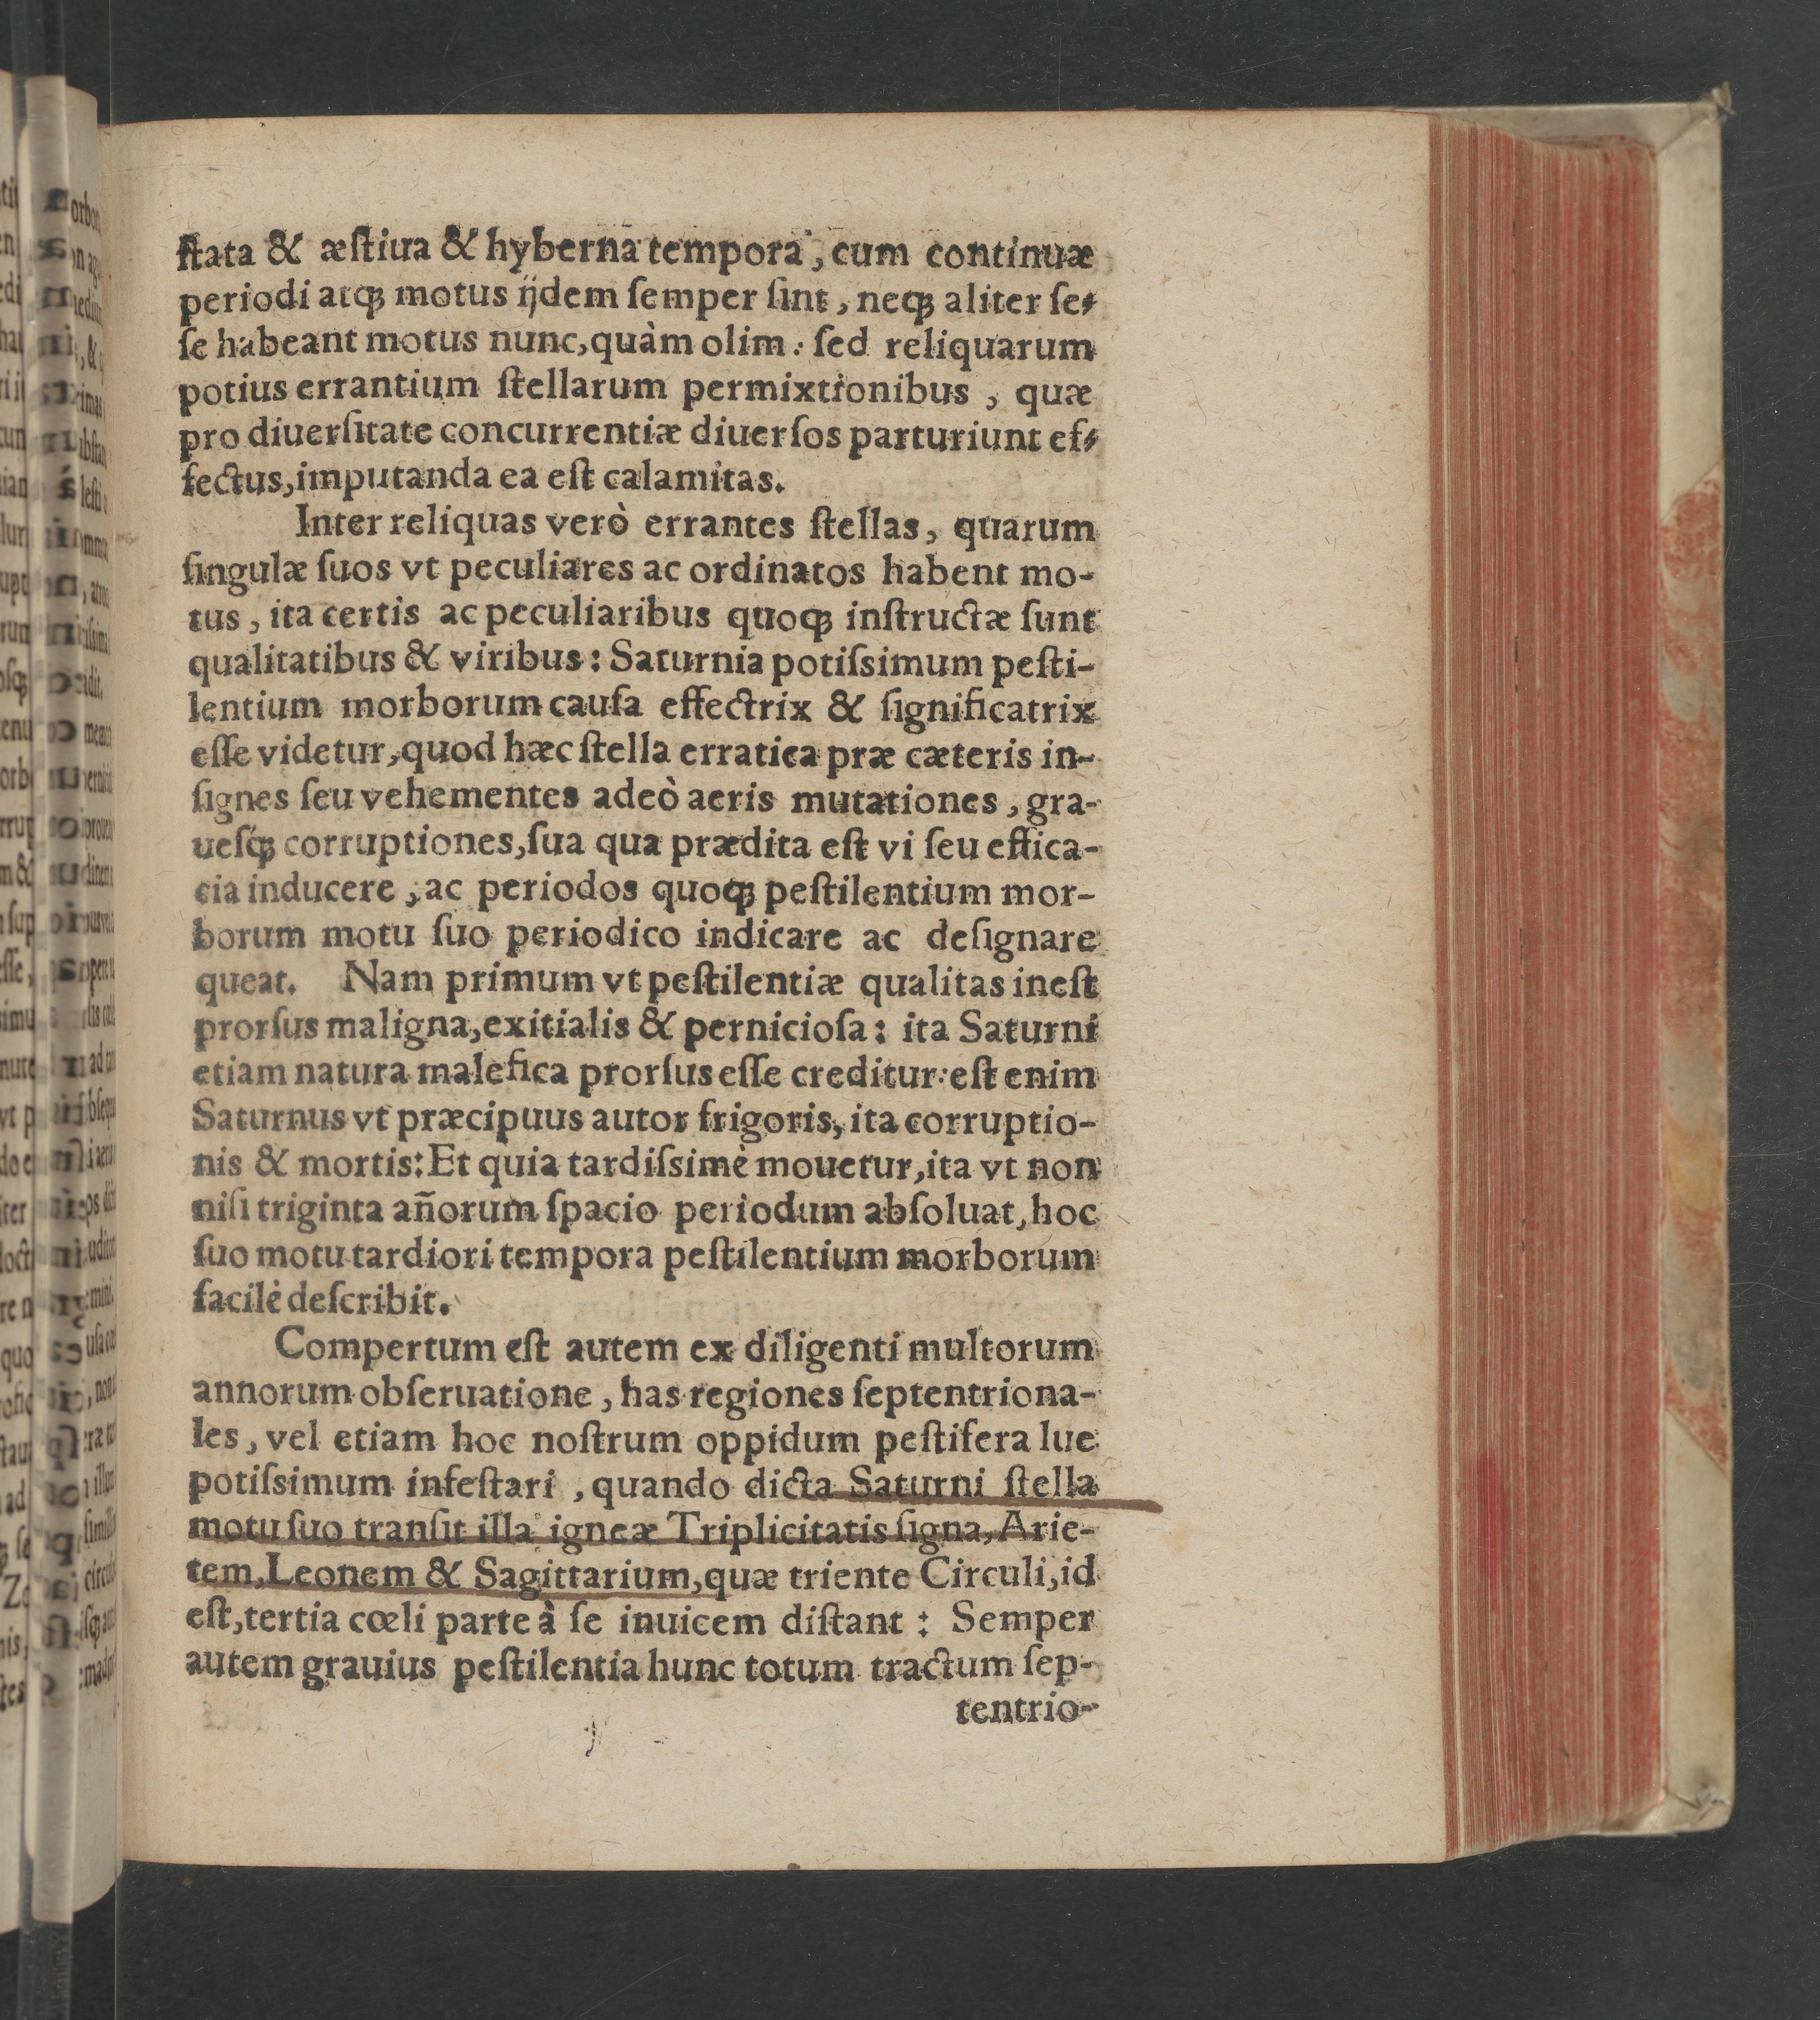 ſtata & æſtiua & hyberna tempora, cum continuæ
periodi atqꝫ motus ijdem ſemper ſint, neqꝫ aliter ſe-
ſe habeant motus nunc, quàm olim: ſed reliquarum
potius errantium ſtellarum permixtionibus, quæ
pro diuerſitate concurrentiæ diuerſos parturiunt ef-
fectus, imputanda ea eſt calamitas.
Inter reliquas verò errantes ſtellas, quarum
ſingulæ ſuos vt peculiares ac ordinatos habent mo-
tus, ita certis ac peculiaribus quoqꝫ inſtructæ ſunt
qualitatibus & viribus: Saturnia potiſsimum peſti-
lentium morborum cauſa effectrix & ſignificatrix
eſſe videtur, quod hæc ſtella erratica præ cæteris in-
ſignes ſeu vehementes adeò aeris mutationes, gra-
ueſq́ꝫ corruptiones, ſua qua prædita eſt vi ſeu effica-
cia inducere, ac periodos quoqꝫ peſtilentium mor-
borum motu ſuo periodico indicare ac deſignare
queat. Nam primum vt peſtilentiæ qualitas ineſt
prorſus maligna, exitialis & pernicioſa: ita Saturni
etiam natura malefica prorſus eſſe creditur: eſt enim
Saturnus vt præcipuus autor frigoris, ita corruptio-
nis & mortis: Et quia tardiſsimè mouetur, ita vt non
niſi triginta añorum ſpacio periodum abſoluat, hoc
ſuo motu tardiori tempora peſtilentium morborum
facilè deſcribit.
Compertum eſt autem ex diligenti multorum
annorum obſeruatione, has regiones ſeptentriona-
les, vel etiam hoc noſtrum oppidum peſtifera lue
potiſsimum infeſtari, quando dicta Saturni ſtella
motu ſuo tranſit illa igneæ Triplicitatis ſigna, Arie-
tem, Leonem & Sagittarium, quæ triente Circuli, id
eſt, tertia cœli parte à ſe inuicem diſtant: Semper
autem grauius peſtilentia hunc totum tractum ſep-
tentrio-